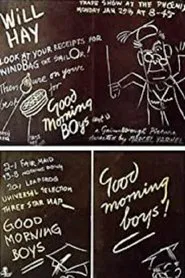 WILL
HAY
LOOK AT YOUR RECEIPTS FOR
WINDBAG THE SAILOR!
Then
on your
Good
Morning
BOYS
a Gainsborough Picture
Directed by MARCEL VARNEL
TRADE SHOW AT THE
MONDAY JAN 25th AT 8-45
2-1 FAIR MAID
20/1 LEAPFROG
UNIVERSAL SELECTION
THREE STAR NAP
GOOD
MORNING
BOYS
Good
morning
boys!